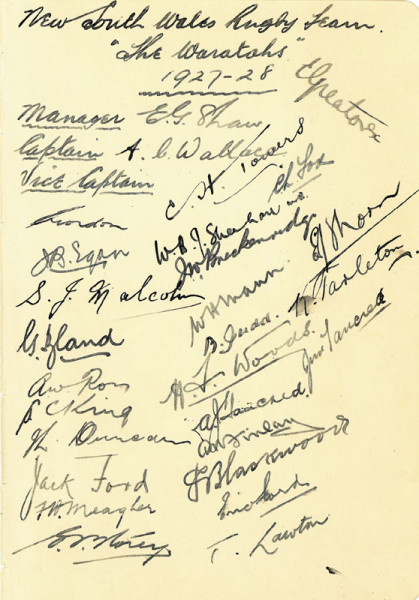 New South Wales Rugby Team.
"The Waratahs"
1927-28
E Greatorex
Manager E.G. Shaw
Captain A. C. Wallace
Vice Captain
C. H. Towers
Ch Fox
Gordon
W.B.J. Sheehan v.c.
J.W. Breckenridge
E J Thorn
J.B. Egan
S. J. Malcolm
W H Mann
K. Tarleton.
B. Judd.
G. Bland
H. F. Woods.
Jim Tancred
A W Ross
A J Tancred
S C King
A N Finlay
W. Duncan
J G Blackwood
Jack Ford
Eric Ford
F. H. Meagher
T. Lawton